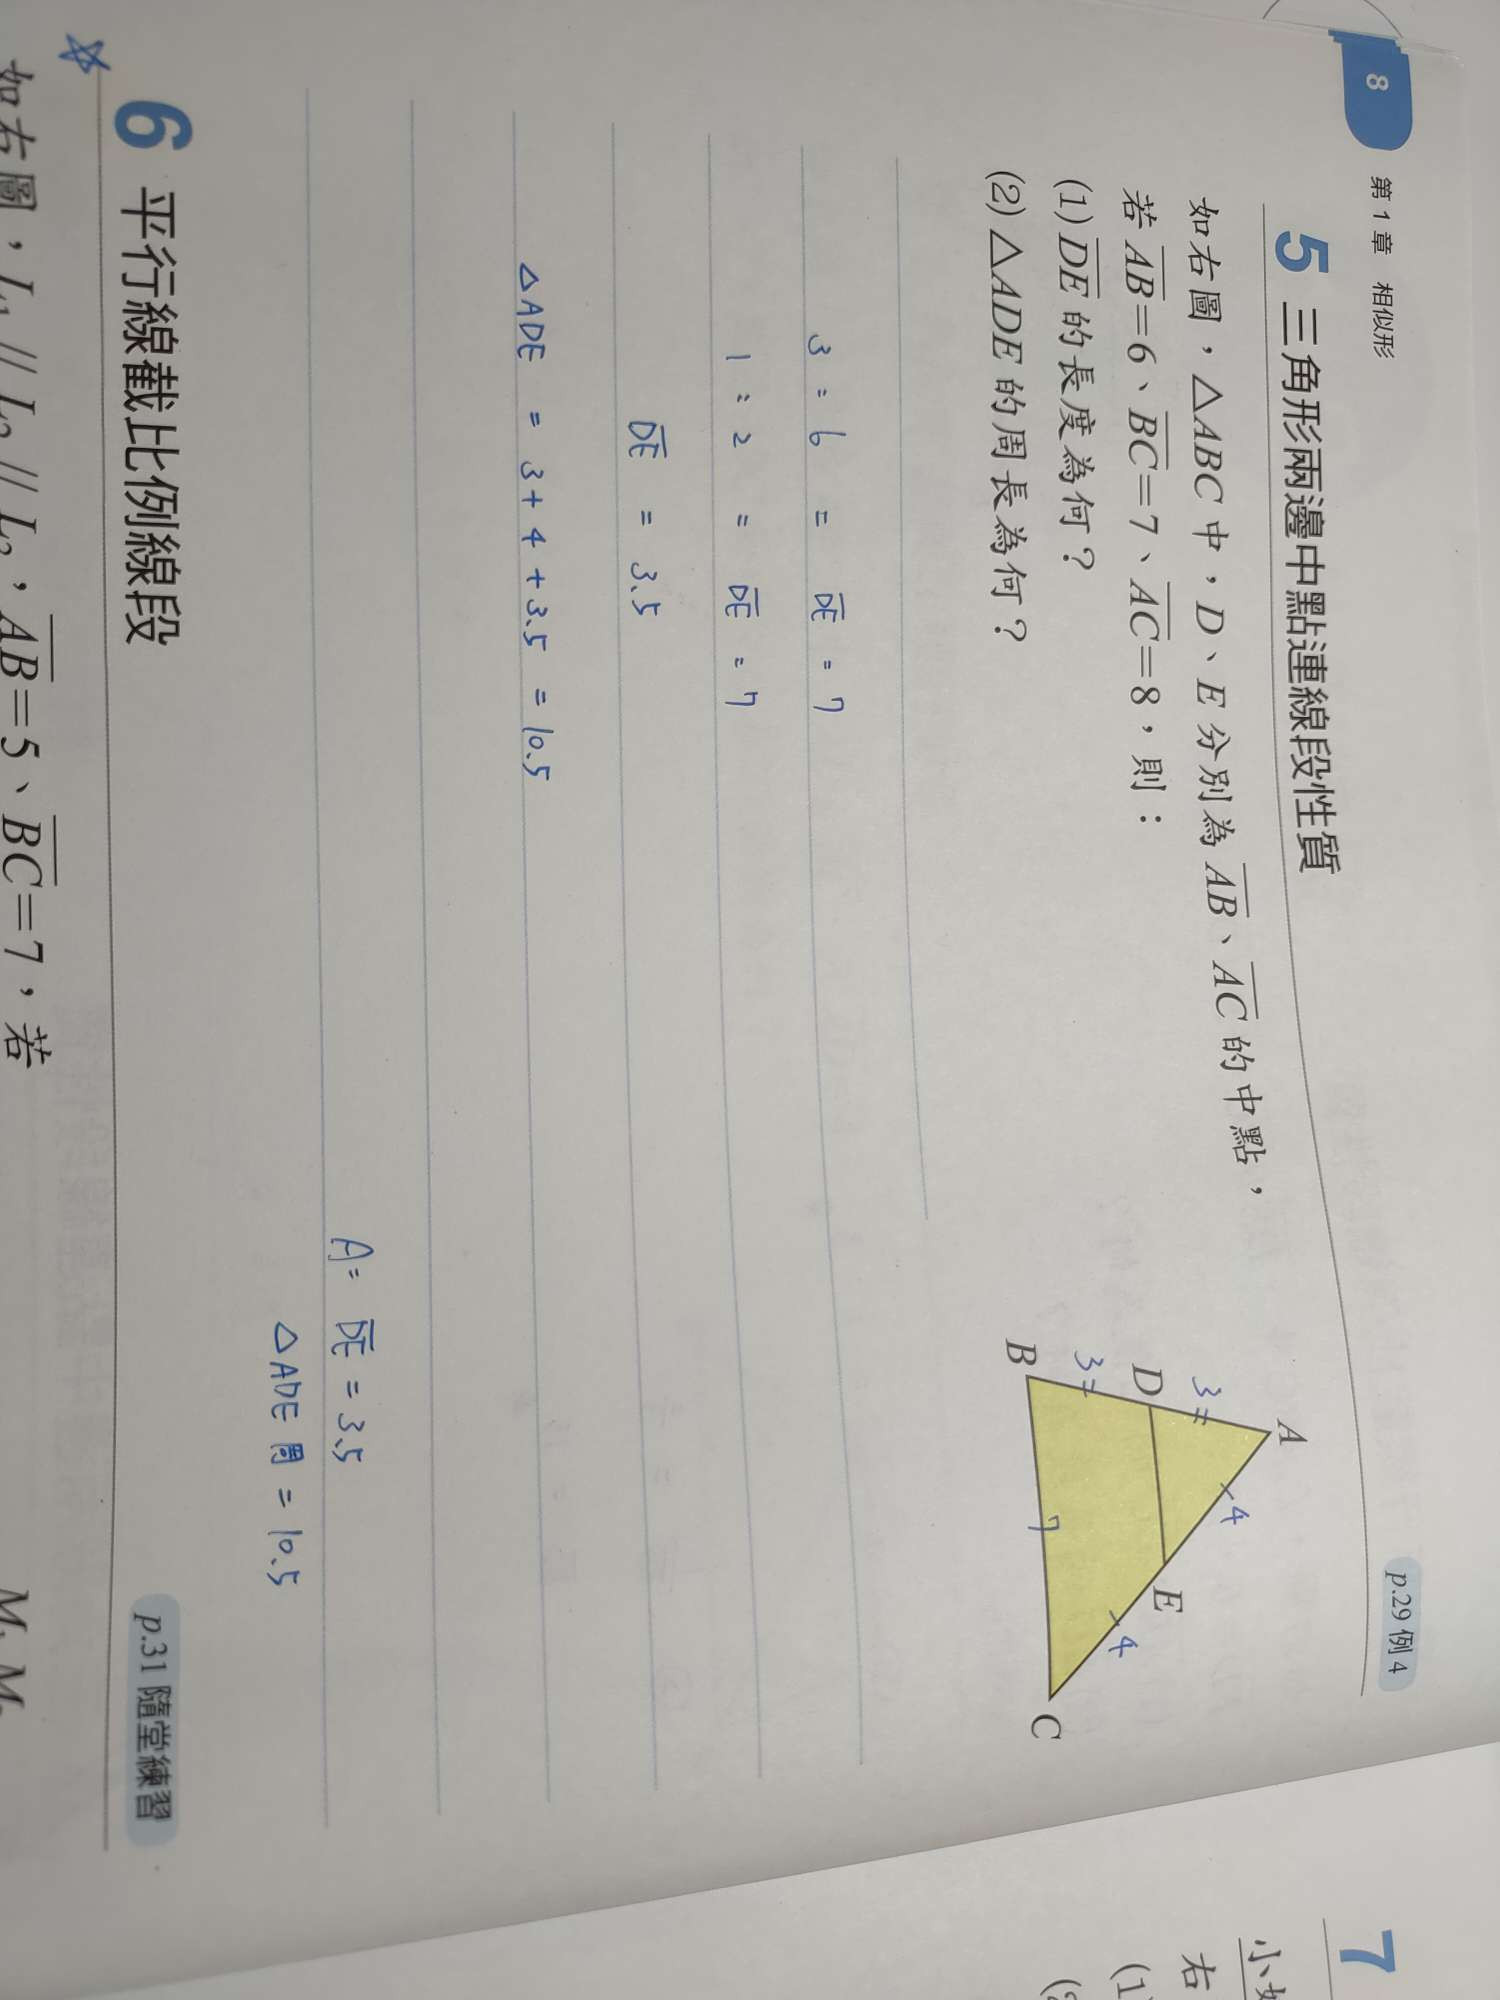 8 第1章 相似形
5 三角形兩邊中點連線段性質 p.29 例4
如右圖，△ABC中，D、E分別為AB、AC的中點，
若AB=6、BC=7、AC=8，則：
(1) DE的長度為何？
(2) △ADE的周長為何？
A
3
4
D
E
3
4
B
7
C
3 : 6 = DE = 7
1 : 2 = DE = 7
DE = 3.5
△ADE = 3+4+3.5 = 10.5
A= DE = 3.5
△ADE 周 = 10.5
6 平行線截比例線段 p.31 隨堂練習
如右圖，L₁ // L₂ // L₃，AB=5、BC=7，若
7
右
(1)